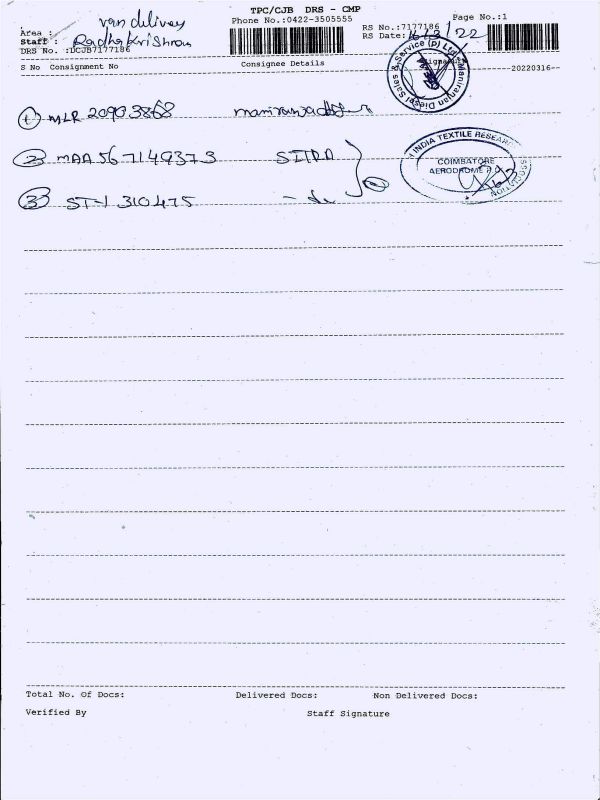 TPC/CJB DRS - CMP
van delivery
Phone No.:0422-3505555
Page No.:1
Area :
RS No.:7177186
Staff : Radha Krishnan
RS Date: 16/3/22
DRS No. :DCJB7177186
Signature
S No Consignment No Consignee Details 20220316--
Maniranjan Diesel Sales & Service (p) Ltd
1 MLR 20903868
2 MAA 567149373 SITRA
INDIA TEXTILE RESEARCH ASSOCIATION
COIMBATORE
AERODROME P.O.
3 310475
Total No. Of Docs: Delivered Docs: Non Delivered Docs:
Verified By Staff Signature